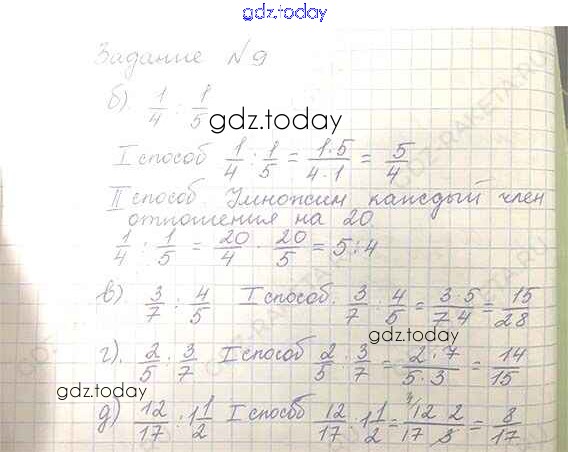 gdz.today
Задание №9
б). 1/4 : 1/5
gdz.today
I способ 1/4 : 1/5 = 1·5/4·1 = 5/4
II способ. Умножим каждый член
отношения на 20.
1/4 : 1/5 = 20/4 : 20/5 = 5:4
в). 3/7 : 4/5 I способ. 3/7 : 4/5 = 3·5/7·4 = 15/28
gdz.today
г). 2/5 : 3/7 I способ 2/5 : 3/7 = 2·7/5·3 = 14/15
gdz.today
д) 12/17 : 1 1/2 I способ 12/17 : 1 1/2 = 12 2/17 3 = 8/17
GDZ-RAKETA.RU